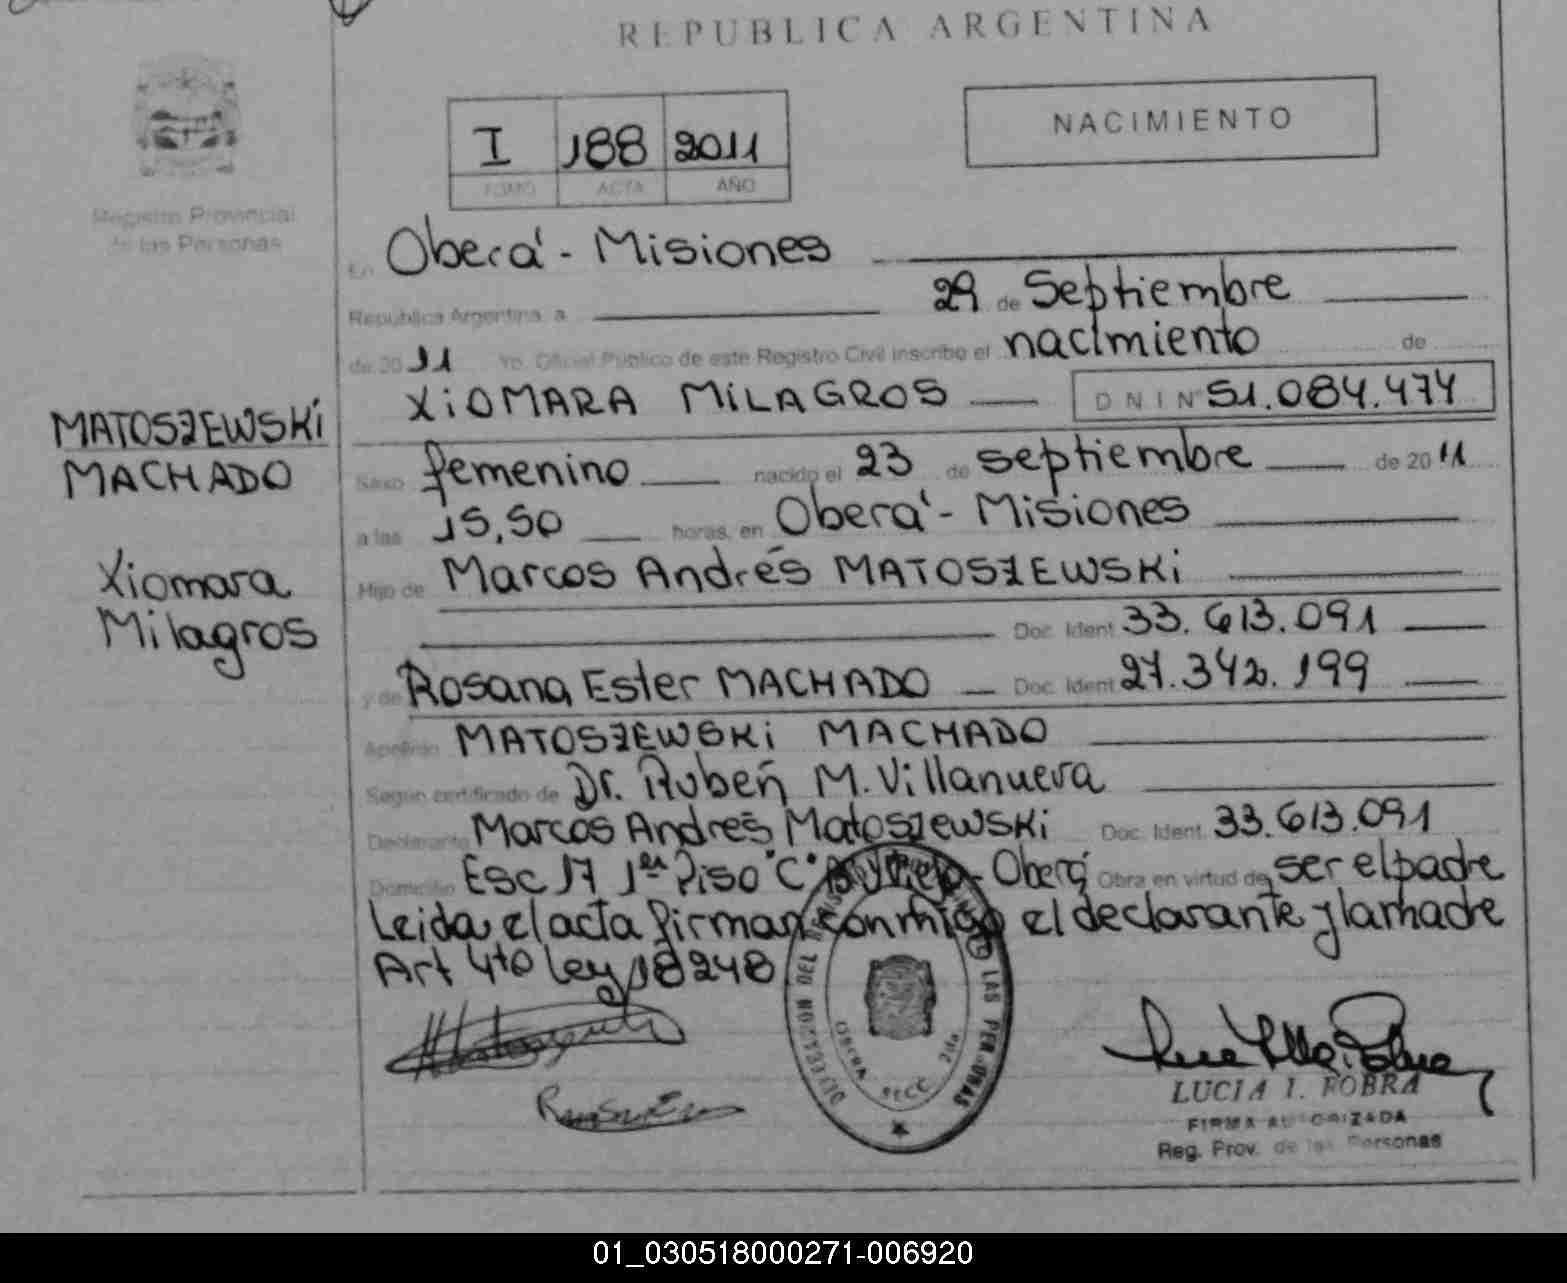 REPUBLICA ARGENTINA
NACIMIENTO
I 188 2011
TOMO ACTA AÑO
Registro Provincial
de las Personas
En Oberá - Misiones
República Argentina a 29 de Septiembre
de 2011 Yo, Oficial Público de este Registro Civil inscribo el nacimiento de
XiOMARA MiLAGROS D N I Nº 51.084.474
MATOSZEWSKi
MACHADO
Xiomara
Milagros
Sexo femenino nacido el 23 de septiembre de 2011
a las 15,50 horas, en Oberá - Misiones
Hijo de Marcos Andrés MATOSZEWSKi
Doc. Ident. 33.613.091
y de Rosana Ester MACHADO Doc. Ident. 27.342.199
Apellido MATOSZEWSKi MACHADO
Según certificado de Dr. Rubén M. Villanueva
Declarante Marcos Andrés Matoszewski Doc. Ident. 33.613.091
Domicilio Esc 17 1er Piso "C" - Oberá Obra en virtud de ser el padre
Leida el acta firman conmigo el declarante y la madre
Art 4to Ley 18248
OBERA SECC. 2da
LAS PERSONAS
LUCIA I. FOBRA
FIRMA AUTORIZADA
Reg. Prov. de las Personas
01_030518000271-006920